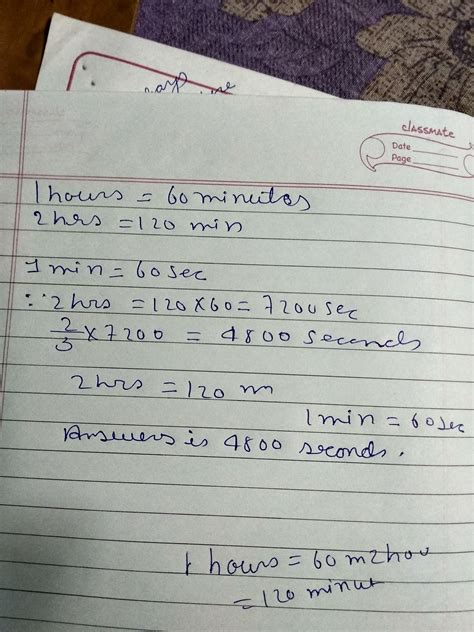 classmate
Date
Page
1 hours = 60 minutes
2 hrs = 120 min
1 min = 60 sec
∵ 2 hrs = 120 × 60 = 7200 sec
2/3 × 7200 = 4800 seconds
2 hrs = 120 m
1 min = 60 sec
Answers is 4800 seconds.
1 hours = 60 m 2 hou
= 120 minut